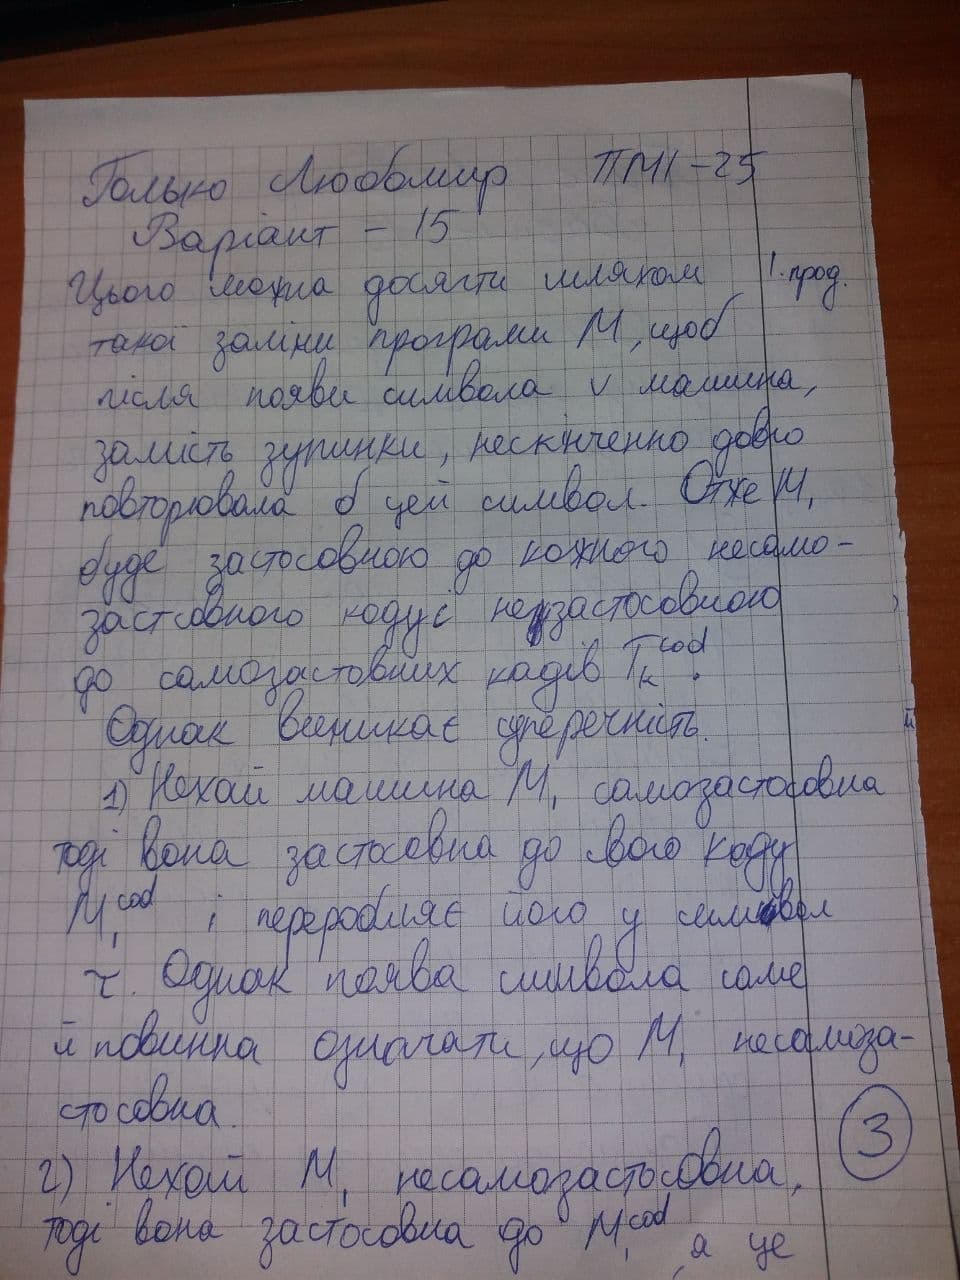 Голько Любомир ПМІ-25
Варіант - 15
Цього можна досягти шляхом 1. прод.
такої заміни програми M, щоб
після появи символа v машина,
замість зупинки, нескінченно довго
повторювала б цей символ. Отже M₁
буде застосовною до кожного несамо-
застсовного коду і незастосовною
до самозастовних кодів Tₖᶜᵒᵈ.
Однак виникає суперечність.
1) Нехай машина M₁ самозастосовна
тоді вона застосовна до свого коду
M₁ᶜᵒᵈ і переробляє його у символ
τ. Однак поява символа саме
й повинна означати, що M₁ несамоза-
стосовна.
2) Нехай M₁ несамозастосовна,
тоді вона застосовна до M₁ᶜᵒᵈ, а це
3